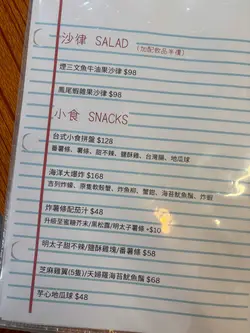 沙律 SALAD (加配飲品半價)
煙三文魚牛油果沙律 $98
鳳尾蝦雞果沙律 $98
小食 SNACKS
台式小食拼盤 $128
番薯條、薯條、甜不辣、鹽酥雞、台灣腸、地瓜球
海洋大爆炸 $168
吉列炸蠔、原隻軟殼蟹、炸魚柳、蟹鉗、海苔魷魚鬚、炸蝦
炸薯條配茄汁 $48
升級至蜜糖芥末/黑松露/明太子薯條 +$10
明太子甜不辣/鹽酥雞塊/番薯條 $58
芝麻雞翼(5隻)/天婦羅海苔魷魚鬚 $68
芋心地瓜球 $48